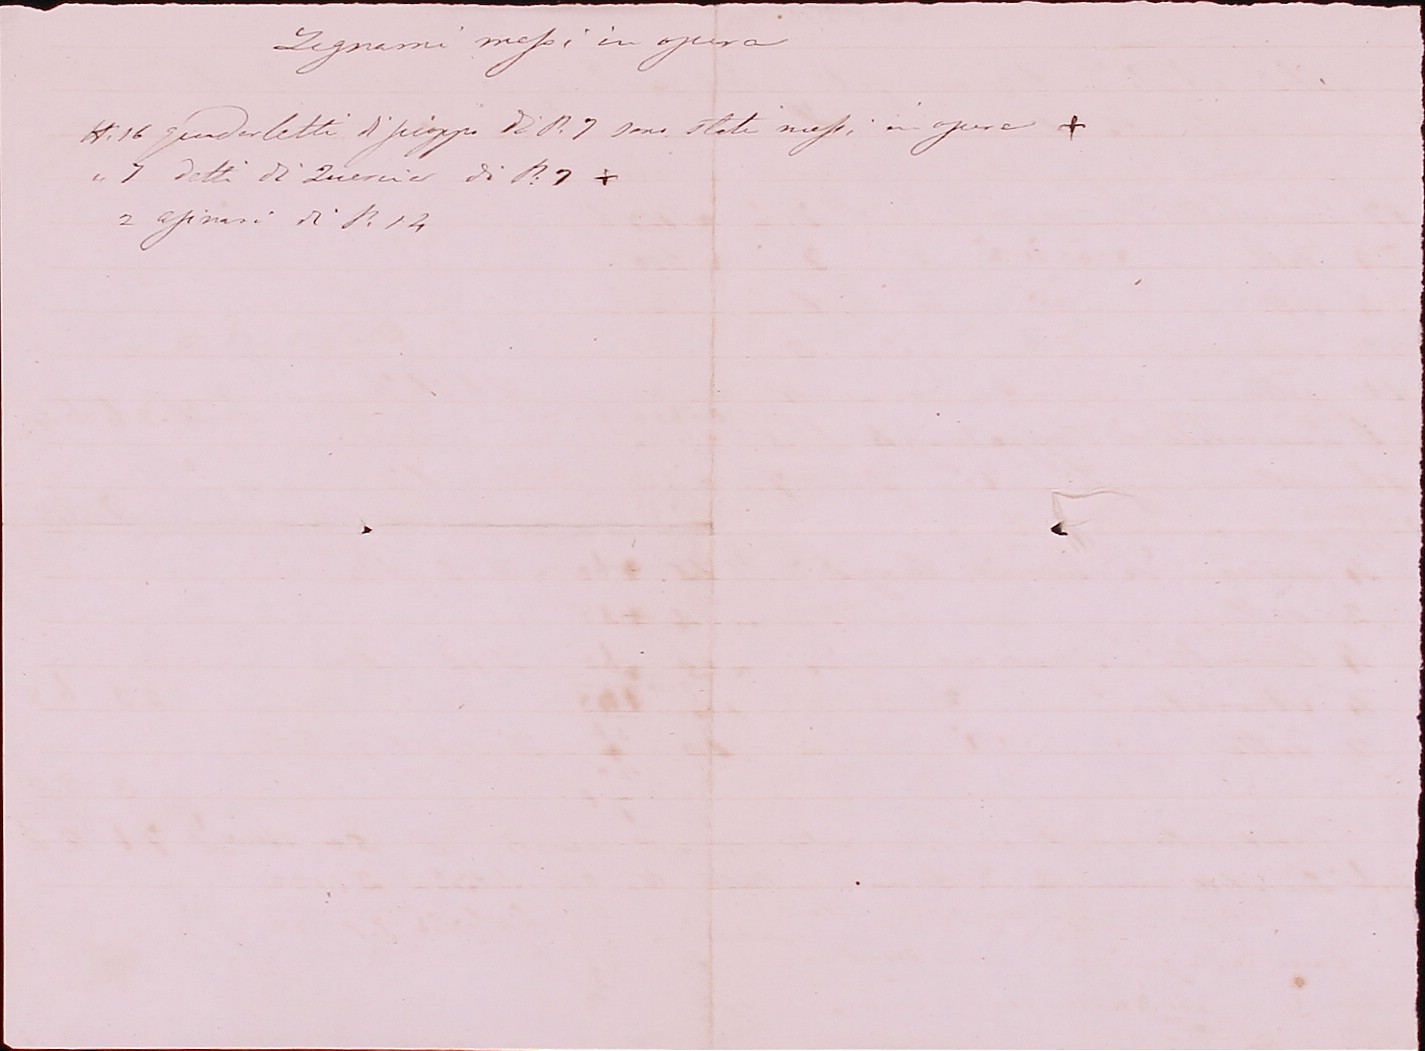 Legnami messi in opera
N. 16 quadarletti di pioppo di P. 7 sono stati messi in opera +
" 7 detti di Quercia di P. 7 +
2 asinari di P. 14